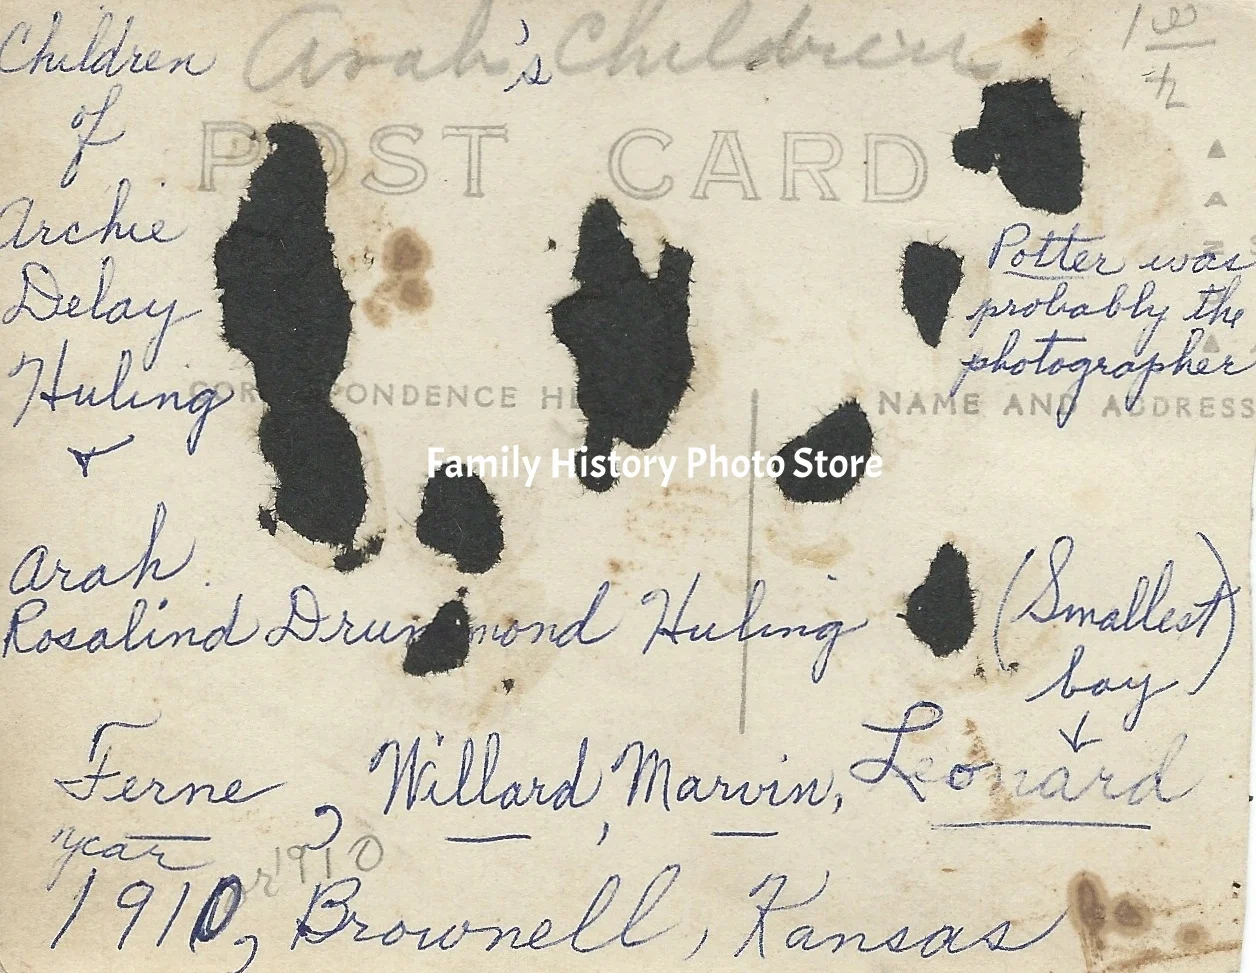 Children
of
Archie
Delay
Huling
+
Arah
Rosalind Drummond Huling
Arah's Children
1 00
POST CARD
Potter was
probably the
photographer
CORRESPONDENCE HE
NAME AND ADDRESS
Family History Photo Store
(Smallest)
boy
Ferne, Willard, Marvin, Leonard
year
or 1910
1910, Brownell, Kansas